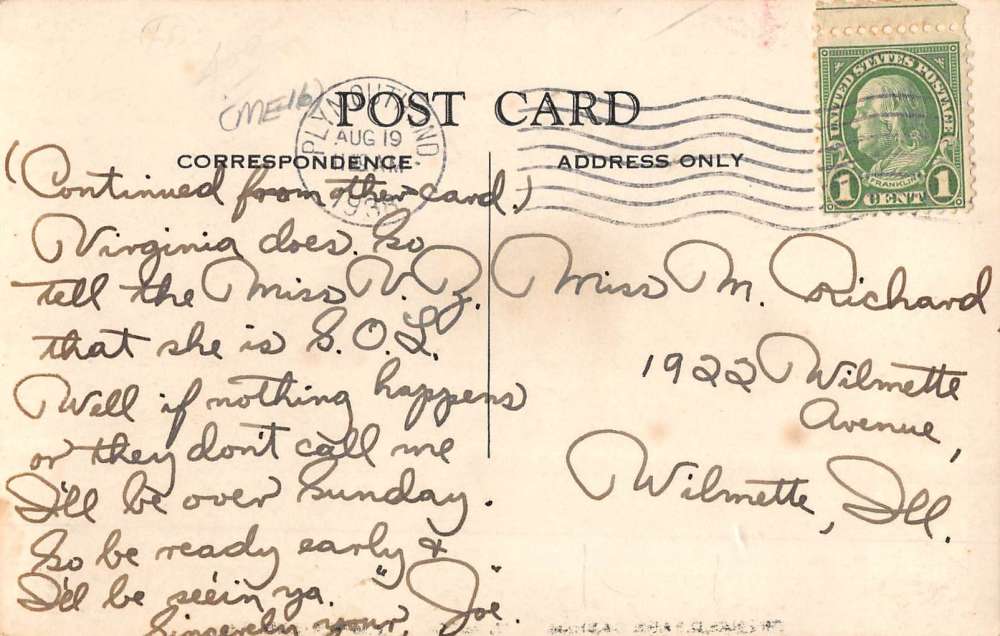 (ME-16)
POST CARD
PLYMOUTH IND
AUG 19
CORRESPONDENCE
ADDRESS ONLY
(Continued from other card.)
Virginia does. So
tell the Miss V. Z.
that she is S.O.L.
Well if nothing happens
or they don't call me
I'll be over Sunday.
So be ready early &
I'll be seein ya.
Sincerely your, "Joe".
Miss M. Richard
1922 Wilmette
Avenue,
Wilmette, Ill.
UNITED STATES POSTAGE
FRANKLIN
1 CENT 1